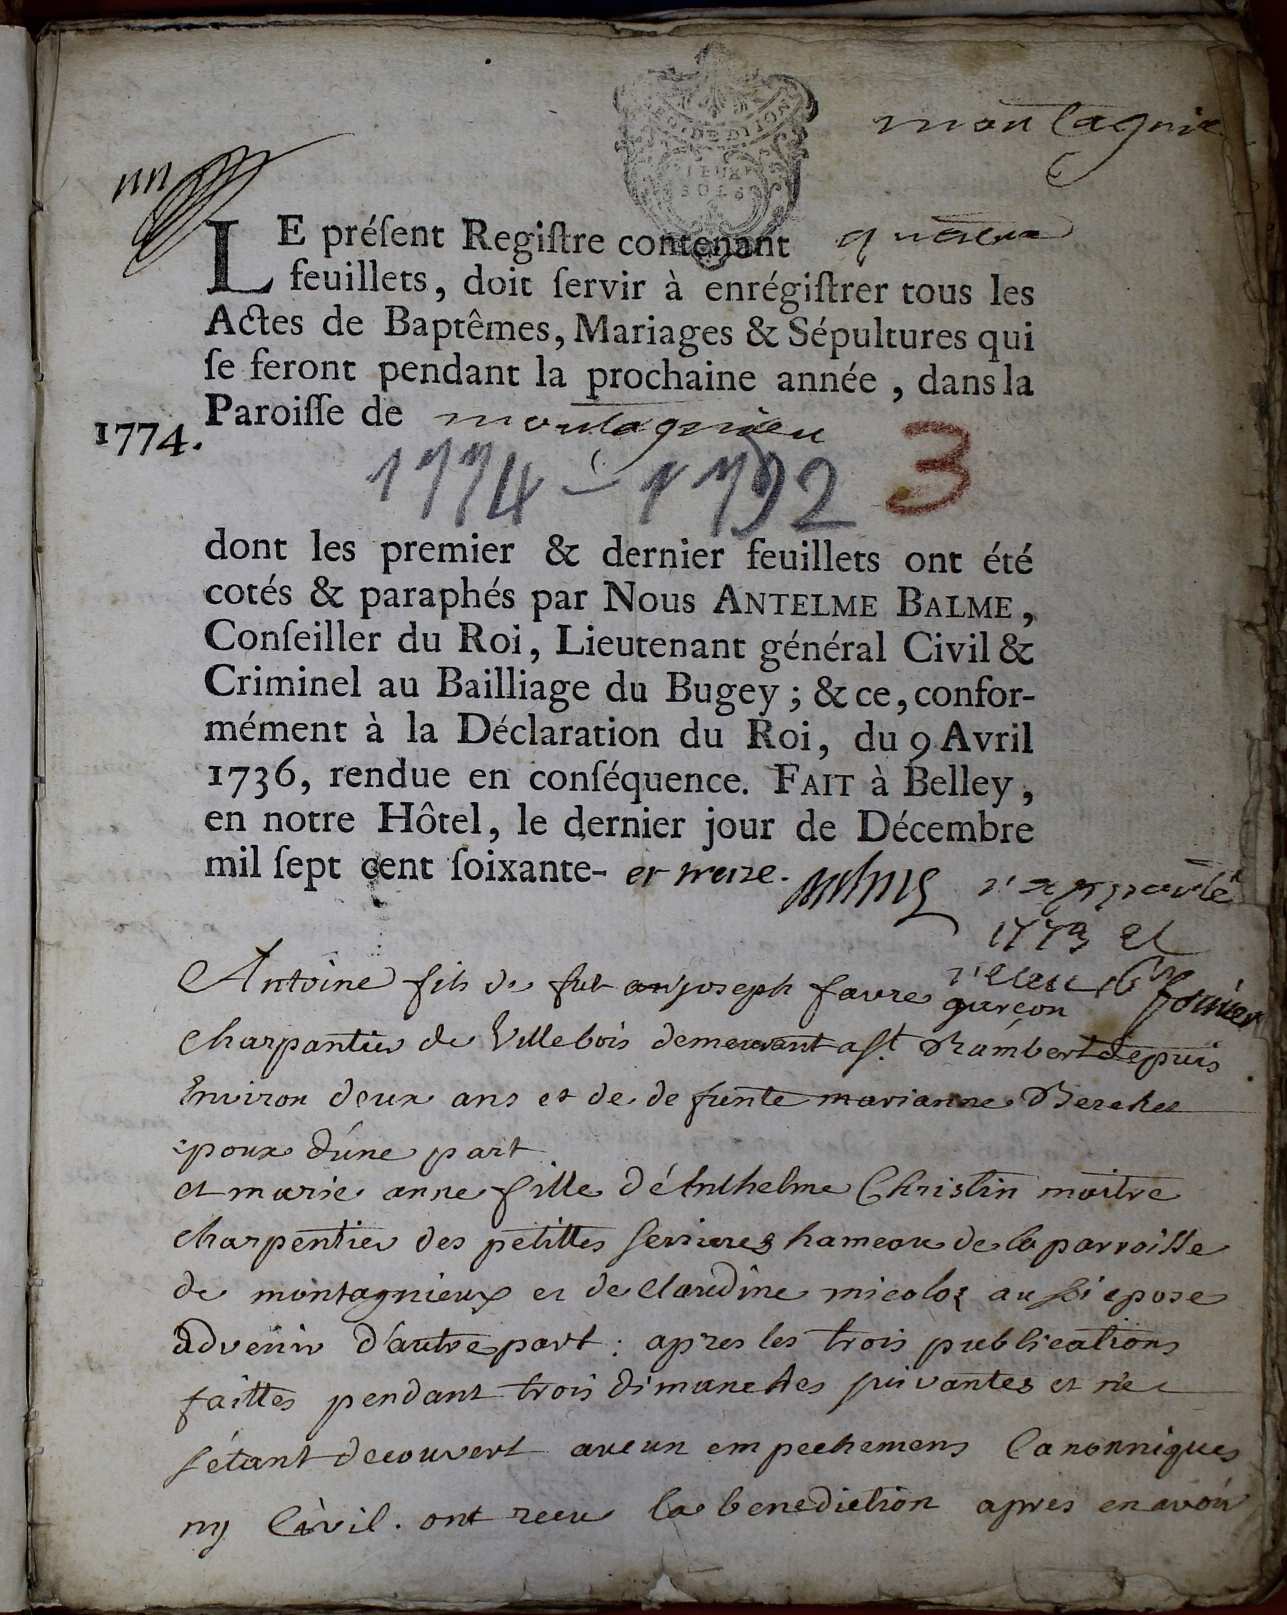 montagnie
LE préſent Regiſtre contenant quatre
feuillets, doit ſervir à enrégiſtrer tous les
Actes de Baptêmes, Mariages & Sépultures qui
ſe feront pendant la prochaine année, dans la
Paroiſſe de montagnieu
1774.
1774 – 1792 3
dont les premier & dernier feuillets ont été
cotés & paraphés par Nous ANTELME BALME,
Conſeiller du Roi, Lieutenant général Civil &
Criminel au Bailliage du Bugey ; & ce, confor-
mément à la Déclaration du Roi, du 9 Avril
1736, rendue en conſéquence. FAIT à Belley,
en notre Hôtel, le dernier jour de Décembre
mil ſept cent ſoixante- et treize.
1773 et
fevrier
Antoine fils de fut joseph favre garçon
charpantier de Villebois demeurant a st. Rambert depuis
Environ deux ans et de defunte marianne
epoux d'une part
et marie anne fille d'Anthelme Christin maitre
charpentier des petittes serrieres hameau de la parroisse
de montagnieux et de claudine micoloz aussi epose
advenir d'autre part : apres les trois publications
faittes pendant trois dimanches suivantes et ne
s'étant decouvert aucun empechemens Canonniques
ny Civil. ont recu la benediction apres en avoir